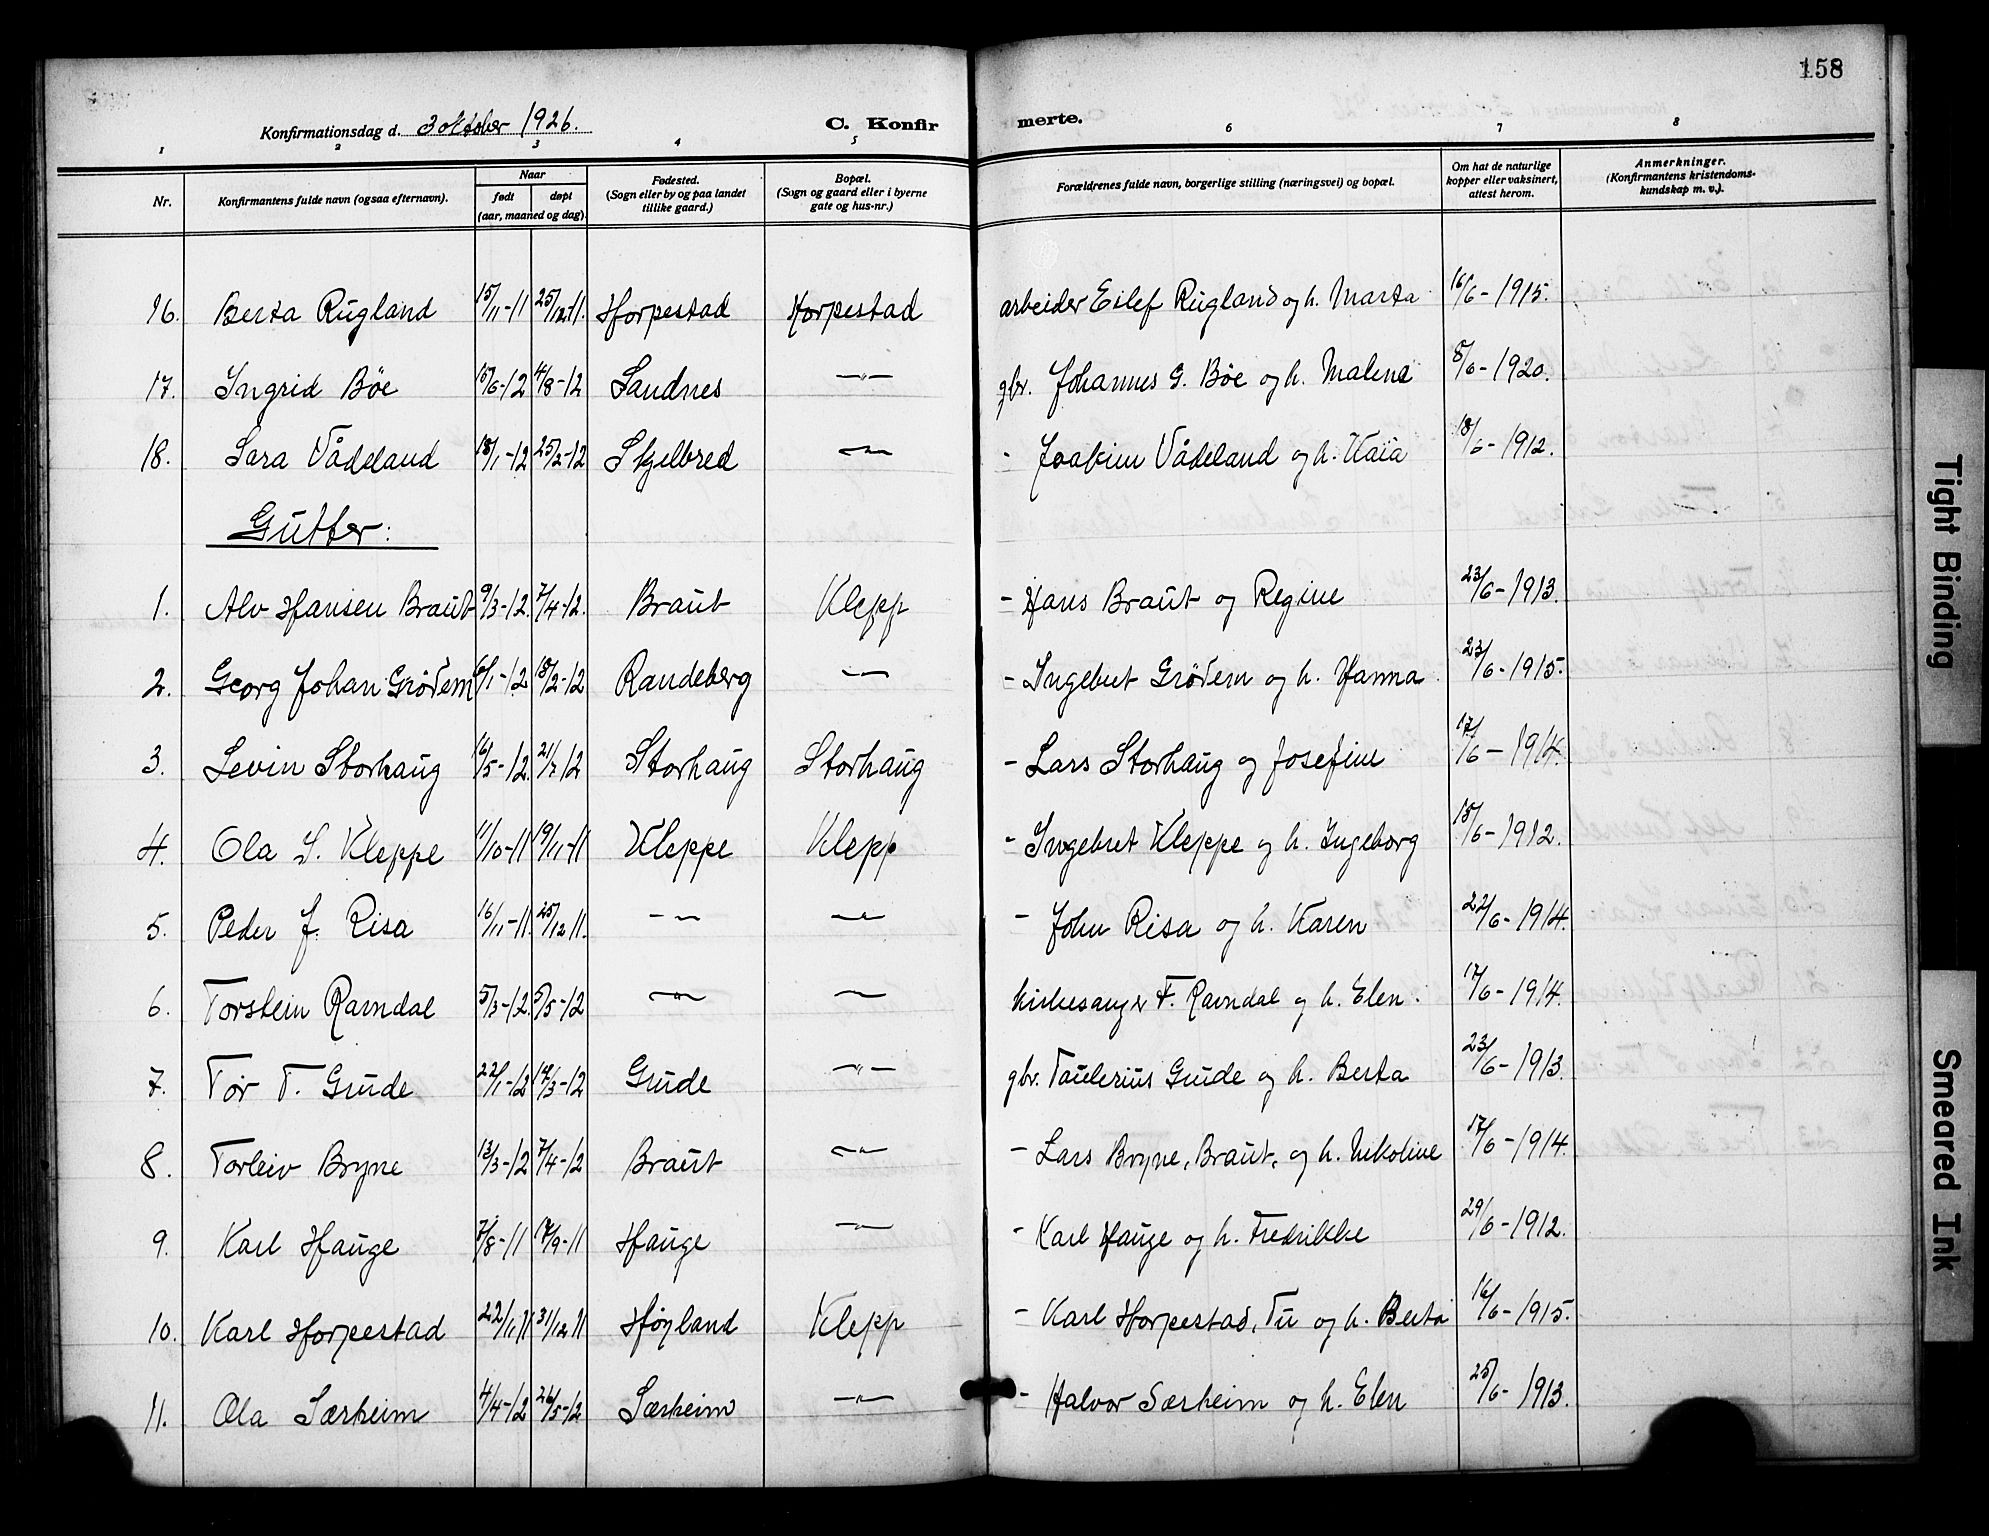 158
Konfirmationsdag d. 3 oktober 1926. C. Konfirmerte.
1 2 3 4 5 6 7 8
Nr. Konfirmantens fulde navn (ogsaa efternavn). Naar født døpt (aar, maaned og dag). Fødested. (Sogn eller by og paa landet tillike gaard.) Bopæl. (Sogn og gaard eller i byerne gate og hus-nr.) Forældrenes fulde navn, borgerlige stilling (næringsvei) og bopæl. Om hat de naturlige kopper eller vaksinert, attest herom. Anmerkninger. (Konfirmantens kristendoms-kundskap m. v.).
16. Berta Rugland 15/11-11 25/12-11. Horpestad Horpestad arbeider Eilef Rugland og h. Marta 16/6-1915.
17. Ingrid Bøe 15/6-12 4/8-12 Sandnes —"— gbr. Johannes G. Bøe og h. Malene 8/6-1920.
18. Sara Vådeland 18/1-12 25/2-12 —"— - Joakim Vådeland og h. Kaia 18/6-1912.
Gutter:
1. Alv Hansen Braut 9/3-12. 7/4-12. Braut Klepp - Hans Braut og Regine 23/6-1913.
2. Georg Johan Grødem 6/1-12 18/2-12 Randeberg —"— - Ingebret Grødem og h. Hanna 23/6-1915.
3. Levin Storhaug 16/5-12. 21/7-12 Storhaug Storhaug - Lars Storhaug og Josefine 17/6-1914.
4. Ola I. Kleppe 11/10-11 19/11-11 Kleppe Klepp - Ingebret Kleppe og h. Ingeborg 18/6-1912.
5. Peder J. Risa 16/11-11. 25/12-11. —"— —"— - John Risa og h. Karen 22/6-1914.
6. Torstein Ravndal 5/3-12. 5/5-12 —"— —"— kirkesanger T. Ravndal og h. Elen. 17/6-1914.
7. Tor T. Grude 22/1-12 10/3-12 Grude —"— gbr. Taulerius Grude og h. Berta 23/6-1913.
8. Torleiv Bryne 13/3-12 7/4-12 Braut —"— - Lars Bryne, Braut, og h. Nikoline 17/6-1914.
9. Karl Hauge 7/8-11 17/9-11 Hauge —"— - Karl Hauge og h. Fredrikke 29/6-1912.
10. Karl Horpestad 22/11-11 31/12-11 Høyland Klepp - Karl Horpestad, Tu og h. Berta 16/6-1915.
11. Ola Særheim 4/4-12 26/5-12 Særheim —"— - Halvor Særheim og h. Elen 25/6-1913.
Tight Binding
Smeared Ink